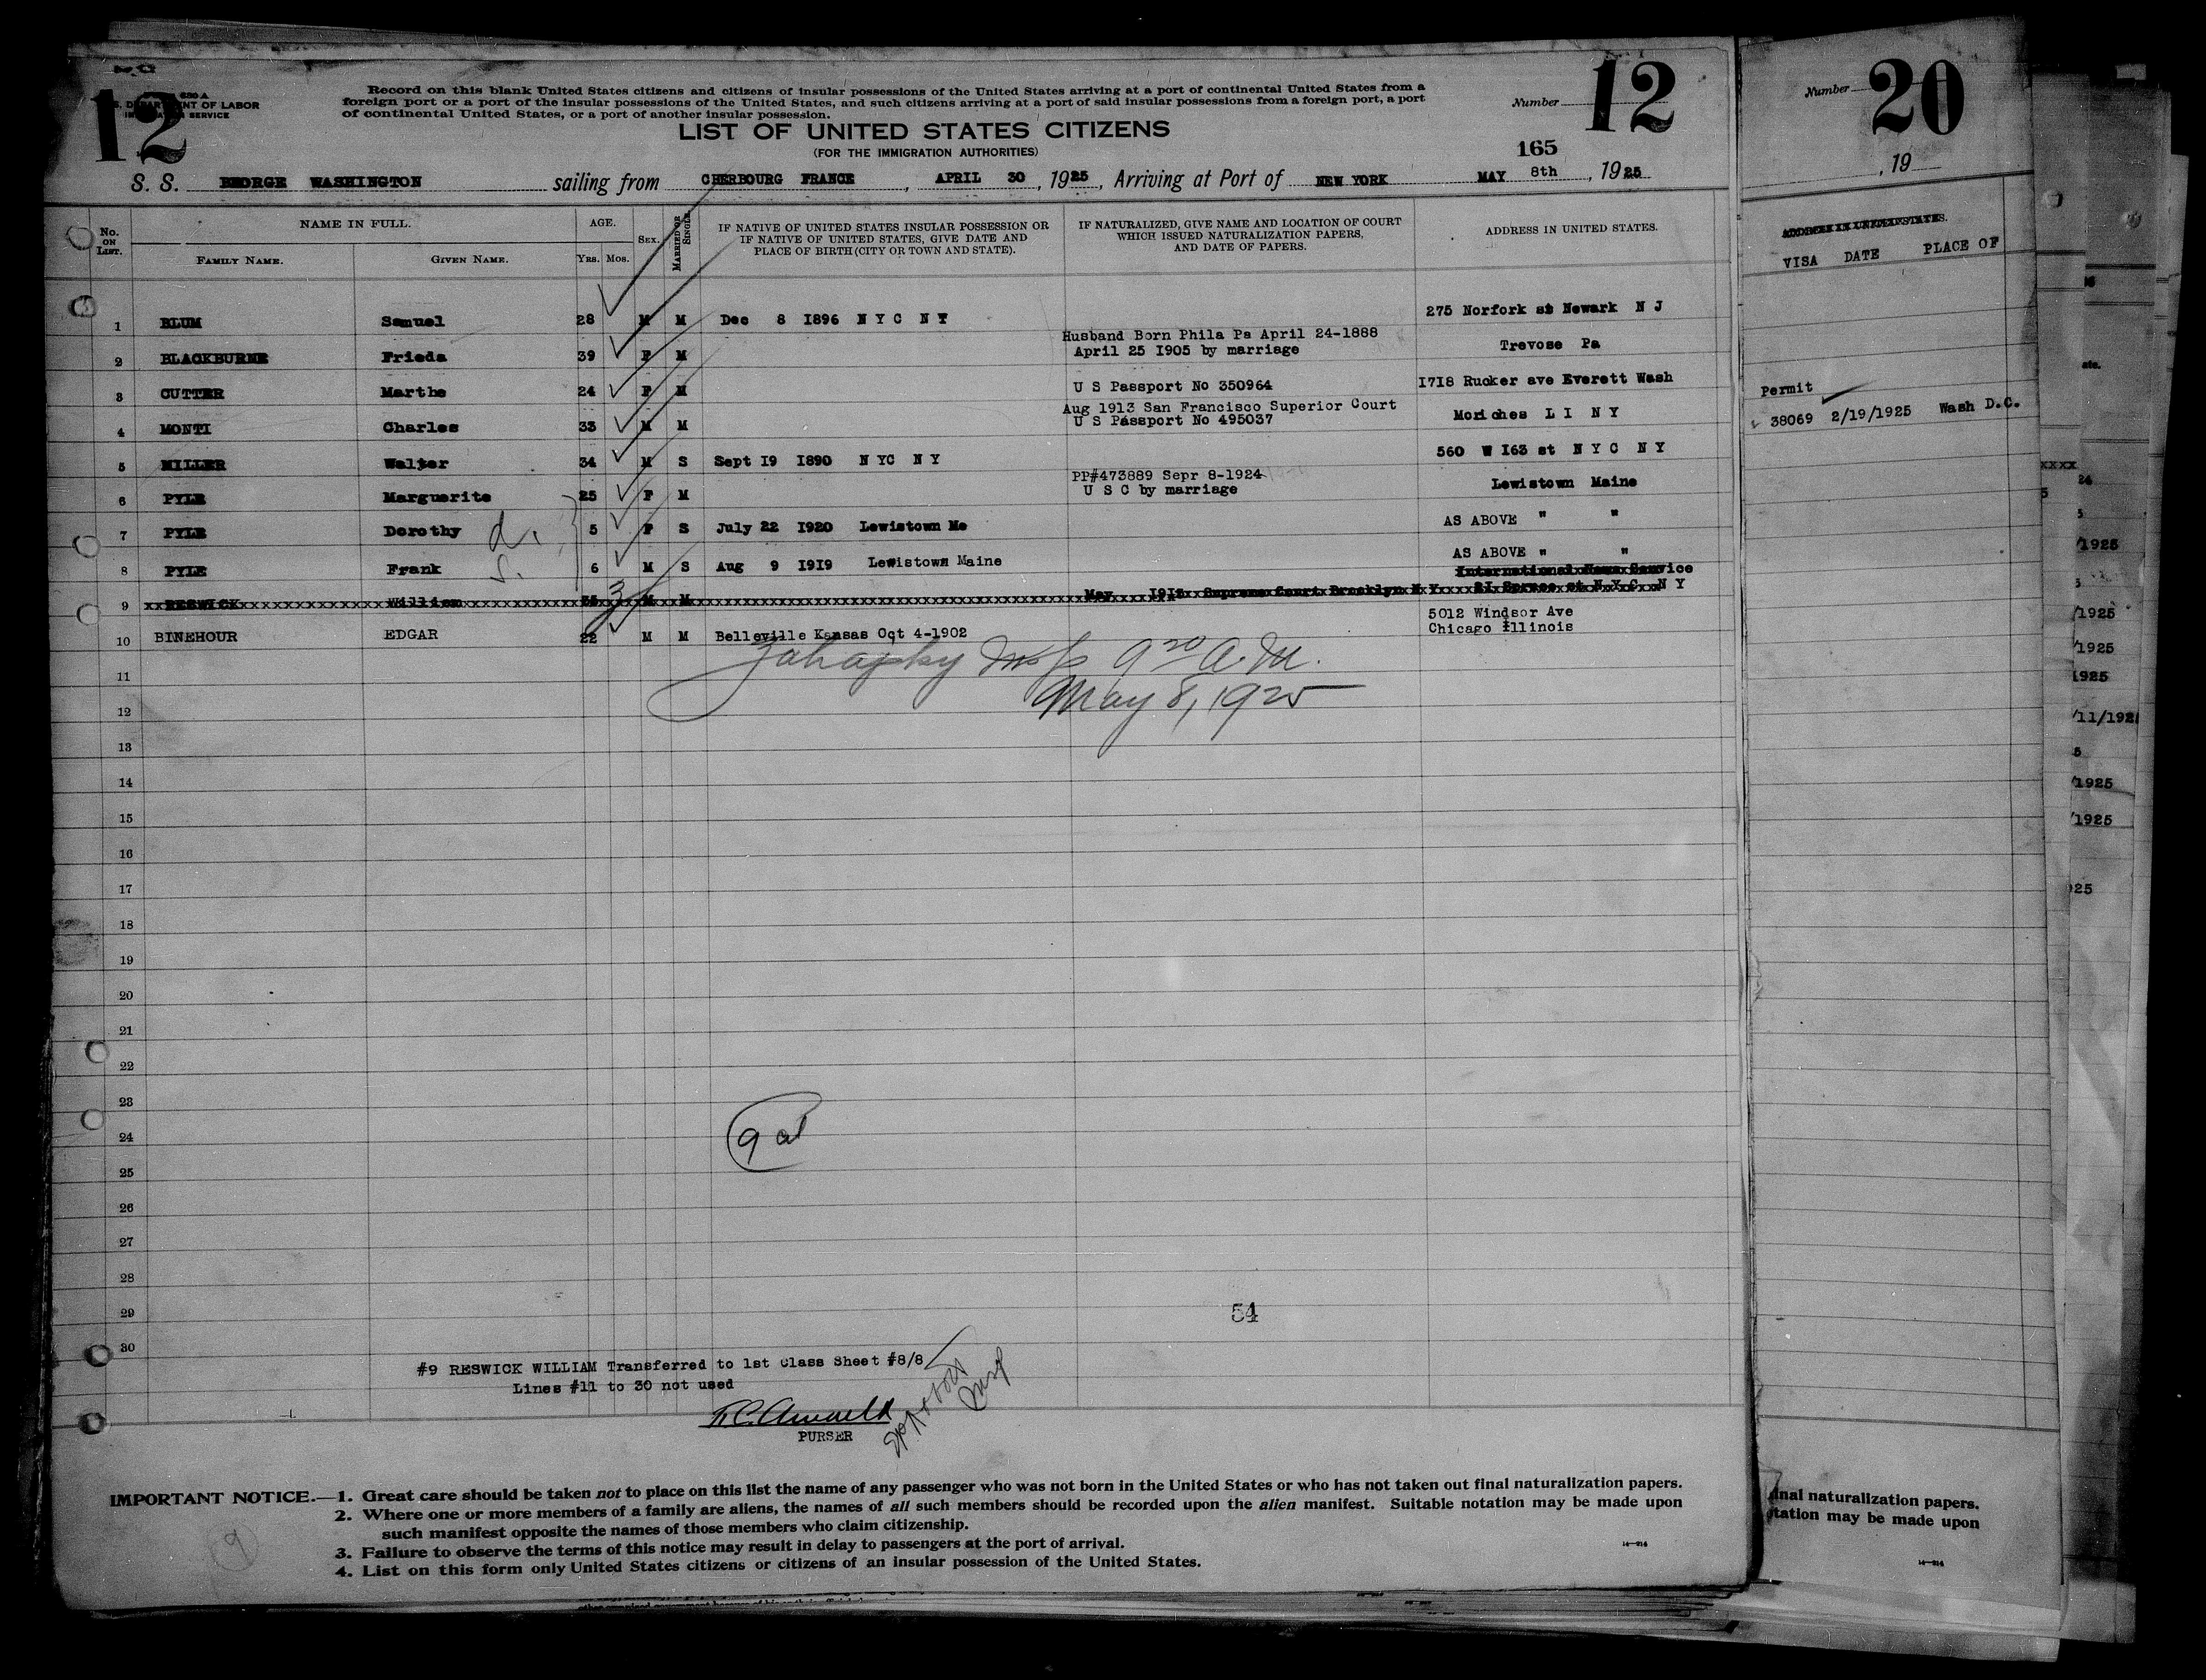 12
U.S. DEPARTMENT OF LABOR
IMMIGRATION SERVICE
Record on this blank United States citizens and citizens of insular possessions of the United States arriving at a port of continental United States from a
foreign port or a port of the insular possessions of the United States, and such citizens arriving at a port of said insular possessions from a foreign port, a port
of continental United States, or a port of another insular possession.
Number 12
LIST OF UNITED STATES CITIZENS
(FOR THE IMMIGRATION AUTHORITIES)
165
S. S. GEORGE WASHINGTON sailing from CHERBOURG FRANCE, APRIL 30, 1925, Arriving at Port of NEW YORK MAY 8th, 1925
No. ON LIST. NAME IN FULL. AGE. SEX. MARRIED OR SINGLE. IF NATIVE OF UNITED STATES INSULAR POSSESSION OR IF NATIVE OF UNITED STATES, GIVE DATE AND PLACE OF BIRTH (CITY OR TOWN AND STATE). IF NATURALIZED, GIVE NAME AND LOCATION OF COURT WHICH ISSUED NATURALIZATION PAPERS, AND DATE OF PAPERS. ADDRESS IN UNITED STATES.
FAMILY NAME. GIVEN NAME. Yrs. Mos.
1 BLUM Samuel 28 M M Dec 8 I896 N Y C N Y 275 Norfork st Newark N J
Husband Born Phila Pa April 24-1888
2 BLACKBURNE Frieda 39 F M April 25 I905 by marriage Trevose Pa
3 CUTTER Marthe 24 F M U S Passport No 350964 I7I8 Rucker ave Everett Wash
Aug 1913 San Francisco Superior Court
4 MONTI Charles 33 M M U S Passport No 495037 Moriches L I N Y
5 MILLER Walter 34 M S Sept I9 I890 N YC N Y 560 W I63 st N Y C N Y
PP#473889 Sepr 8-1924
6 PYLE Marguerite 25 F M U S C by marriage Lewistown Maine
7 PYLE Dorothy d. 5 F S July 22 I920 Lewistown Me AS ABOVE " "
8 PYLE Frank s. 6 M S Aug 9 I9I9 Lewistown Maine AS ABOVE " "
International News Service
9 RESWICK William 35 M M May I9I2 Supreme Court Brooklyn N Y 2I Spruce st N Y C N Y
10 BINEHOUR EDGAR 22 M M Belleville Kansas Oct 4-1902 5012 Windsor Ave
Chicago Illinois
9 20 A.M.
May 8, 1925
11
12
13
14
15
16
17
18
19
20
21
22
23
24
25
26
27
28
29
30
54
#9 RESWICK WILLIAM Transferred to 1st Class Sheet #8/8
Lines #11 to 30 not used
PURSER
IMPORTANT NOTICE.—1. Great care should be taken not to place on this list the name of any passenger who was not born in the United States or who has not taken out final naturalization papers.
2. Where one or more members of a family are aliens, the names of all such members should be recorded upon the alien manifest. Suitable notation may be made upon
such manifest opposite the names of those members who claim citizenship.
3. Failure to observe the terms of this notice may result in delay to passengers at the port of arrival.
4. List on this form only United States citizens or citizens of an insular possession of the United States.
9
14—214
Number 20
, 19
ADDRESS IN UNITED STATES.
VISA DATE PLACE OF
Permit
38069 2/19/1925 Wash D.C.
final naturalization papers.
tation may be made upon
14—214
ate.
xxxx
24
5
5
/1925
5
/1925
/1925
1925
/11/192
5
/1925
/1925
25